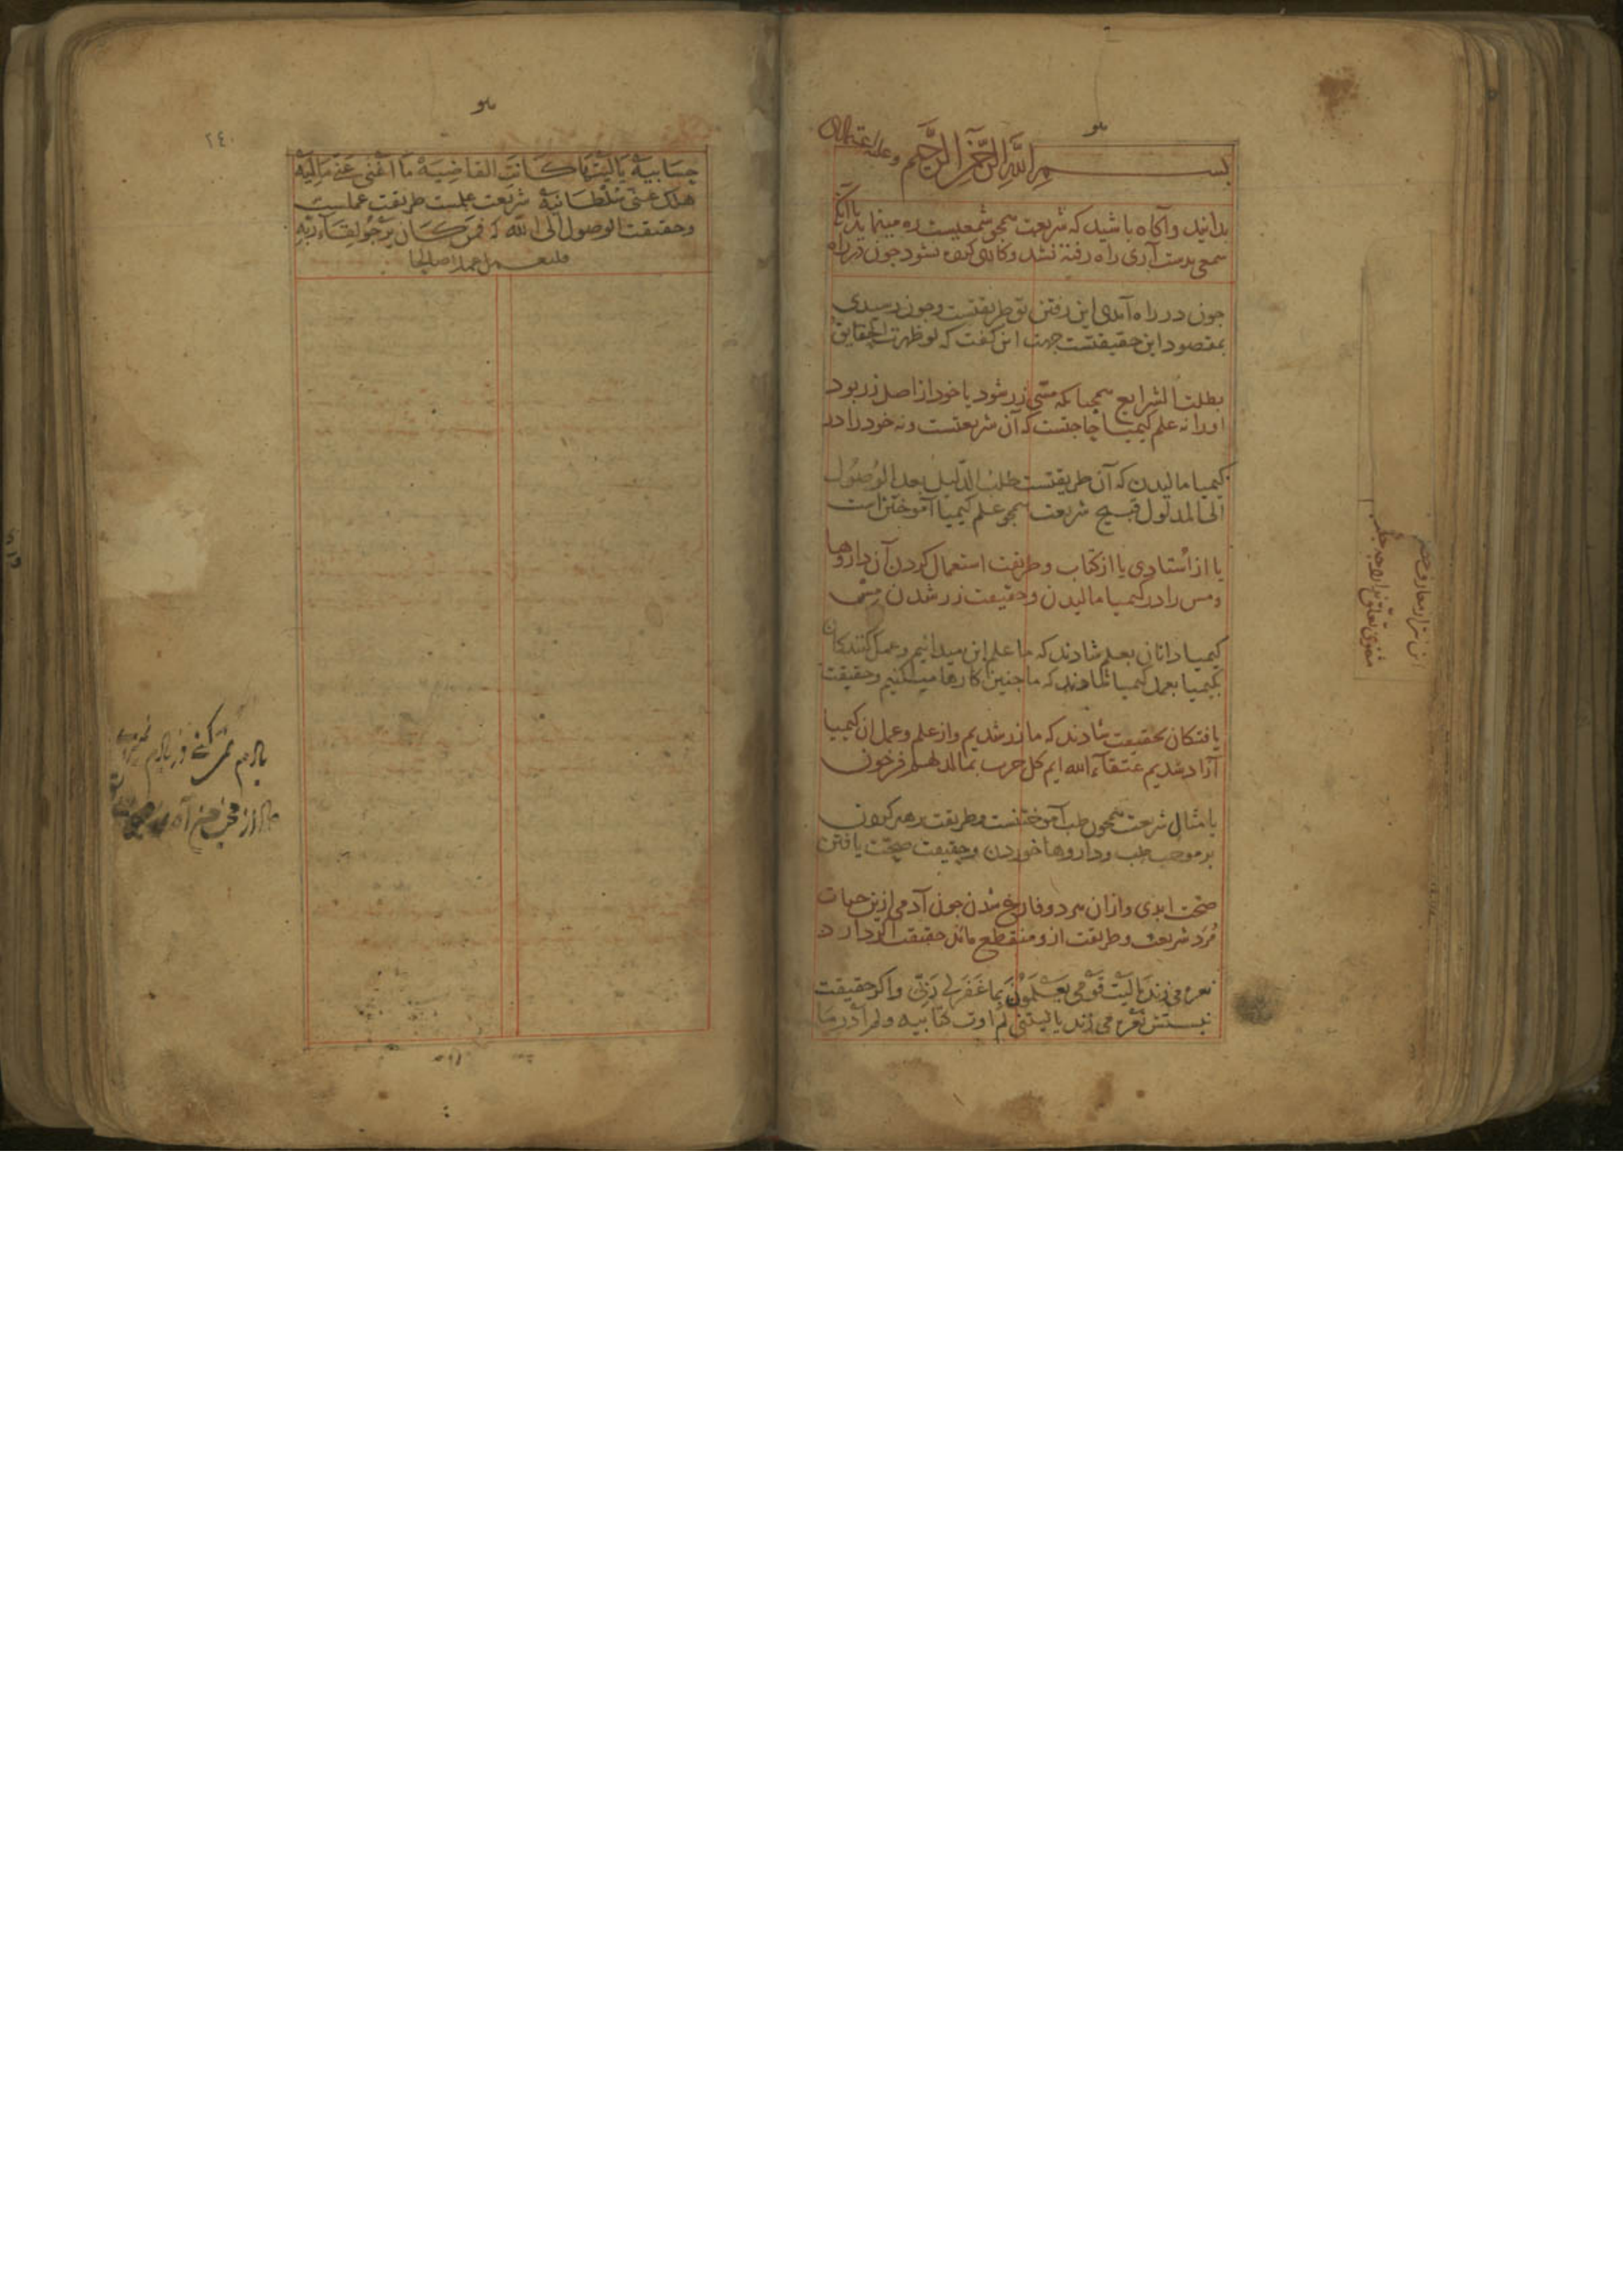 هو
بسم الله الرحمن الرحيم وعليه
بدانید و آکاه باشید که شریعت همچو شمعیست ره مینماید یا آنک
شمعی بدست آری راه رفته نشد و کاری کرده نشود جون در راه
جون در راه آمدی این رفتن تو طریقتست و جون رسیدی
بمقصود این حقیقتست جهت این کفت که لو ظهرت الحقایق
بطلت الشرایع همچنانکه مسی زر شود یا خود از اصل زر بود
اورا نه علم کیمیا حاجتست که آن شریعتست و نه خود را در
کیمیا مالیدن که آن طریقتست طلب الدلیل بعد الوُصُول
الی المدلول قبیح شریعت همجو علم کیمیا آموختن است
یا از اُستادی یا از کتاب و طریقت استعمال کردن آن داروها
و مس را در کیمیا مالیدن و حقیقت زر شدن مس
کیمیا دانان بعلم شادند که ما علم این میدانیم و عمل کنندکان
بکیمیا بعمل کیمیا شادند که ما جنین کارها میکنیم و حقیقت
یافتکان بحقیقت شادند که ما زر شدیم و از علم و عمل ان کیمیا
آزاد شدیم عتقآء الله ایم کل حزب بما لدیهم فرحون
یا مثال شریعت همجون طب آموختنست و طریقت پرهیز کردن
بر موجب طب و داروها خوردن و حقیقت صحّت یافتن
صحّت ابدی و ازان هر دو فارغ شدن جون آدمی ازین حیات
مُرد شریعت و طریقت ازو منقطع ماند حقیقت اکر دارد
نعره می زند یَا لَیْتَ قَوْمی یَعْلَمُوْنَ بِمَا غَفَرَ لی رَبّی و اکر حقیقت
نیستش نعره می زند یا لیتنی لم اوت کتابیه و لم ادر ما
این نثر از معارف حضرت
مثنوی تعلق ندارد جه جلد
هو
٢٤٠
حِسَابِیَهْ یَا لَیْتَهَا کَانَتِ القاضِیَهْ مَا اَغْنی عَنّی مَالِیَهْ
هلک عنّی سُلْطَانِیَهْ شریعت علمست طریقت عملست
و حقیقت الوصول الی الله که فَمَن کَانَ یَرْجُو لِقَاءَ رَبِّهِ
فلیعمل عملا صالحا